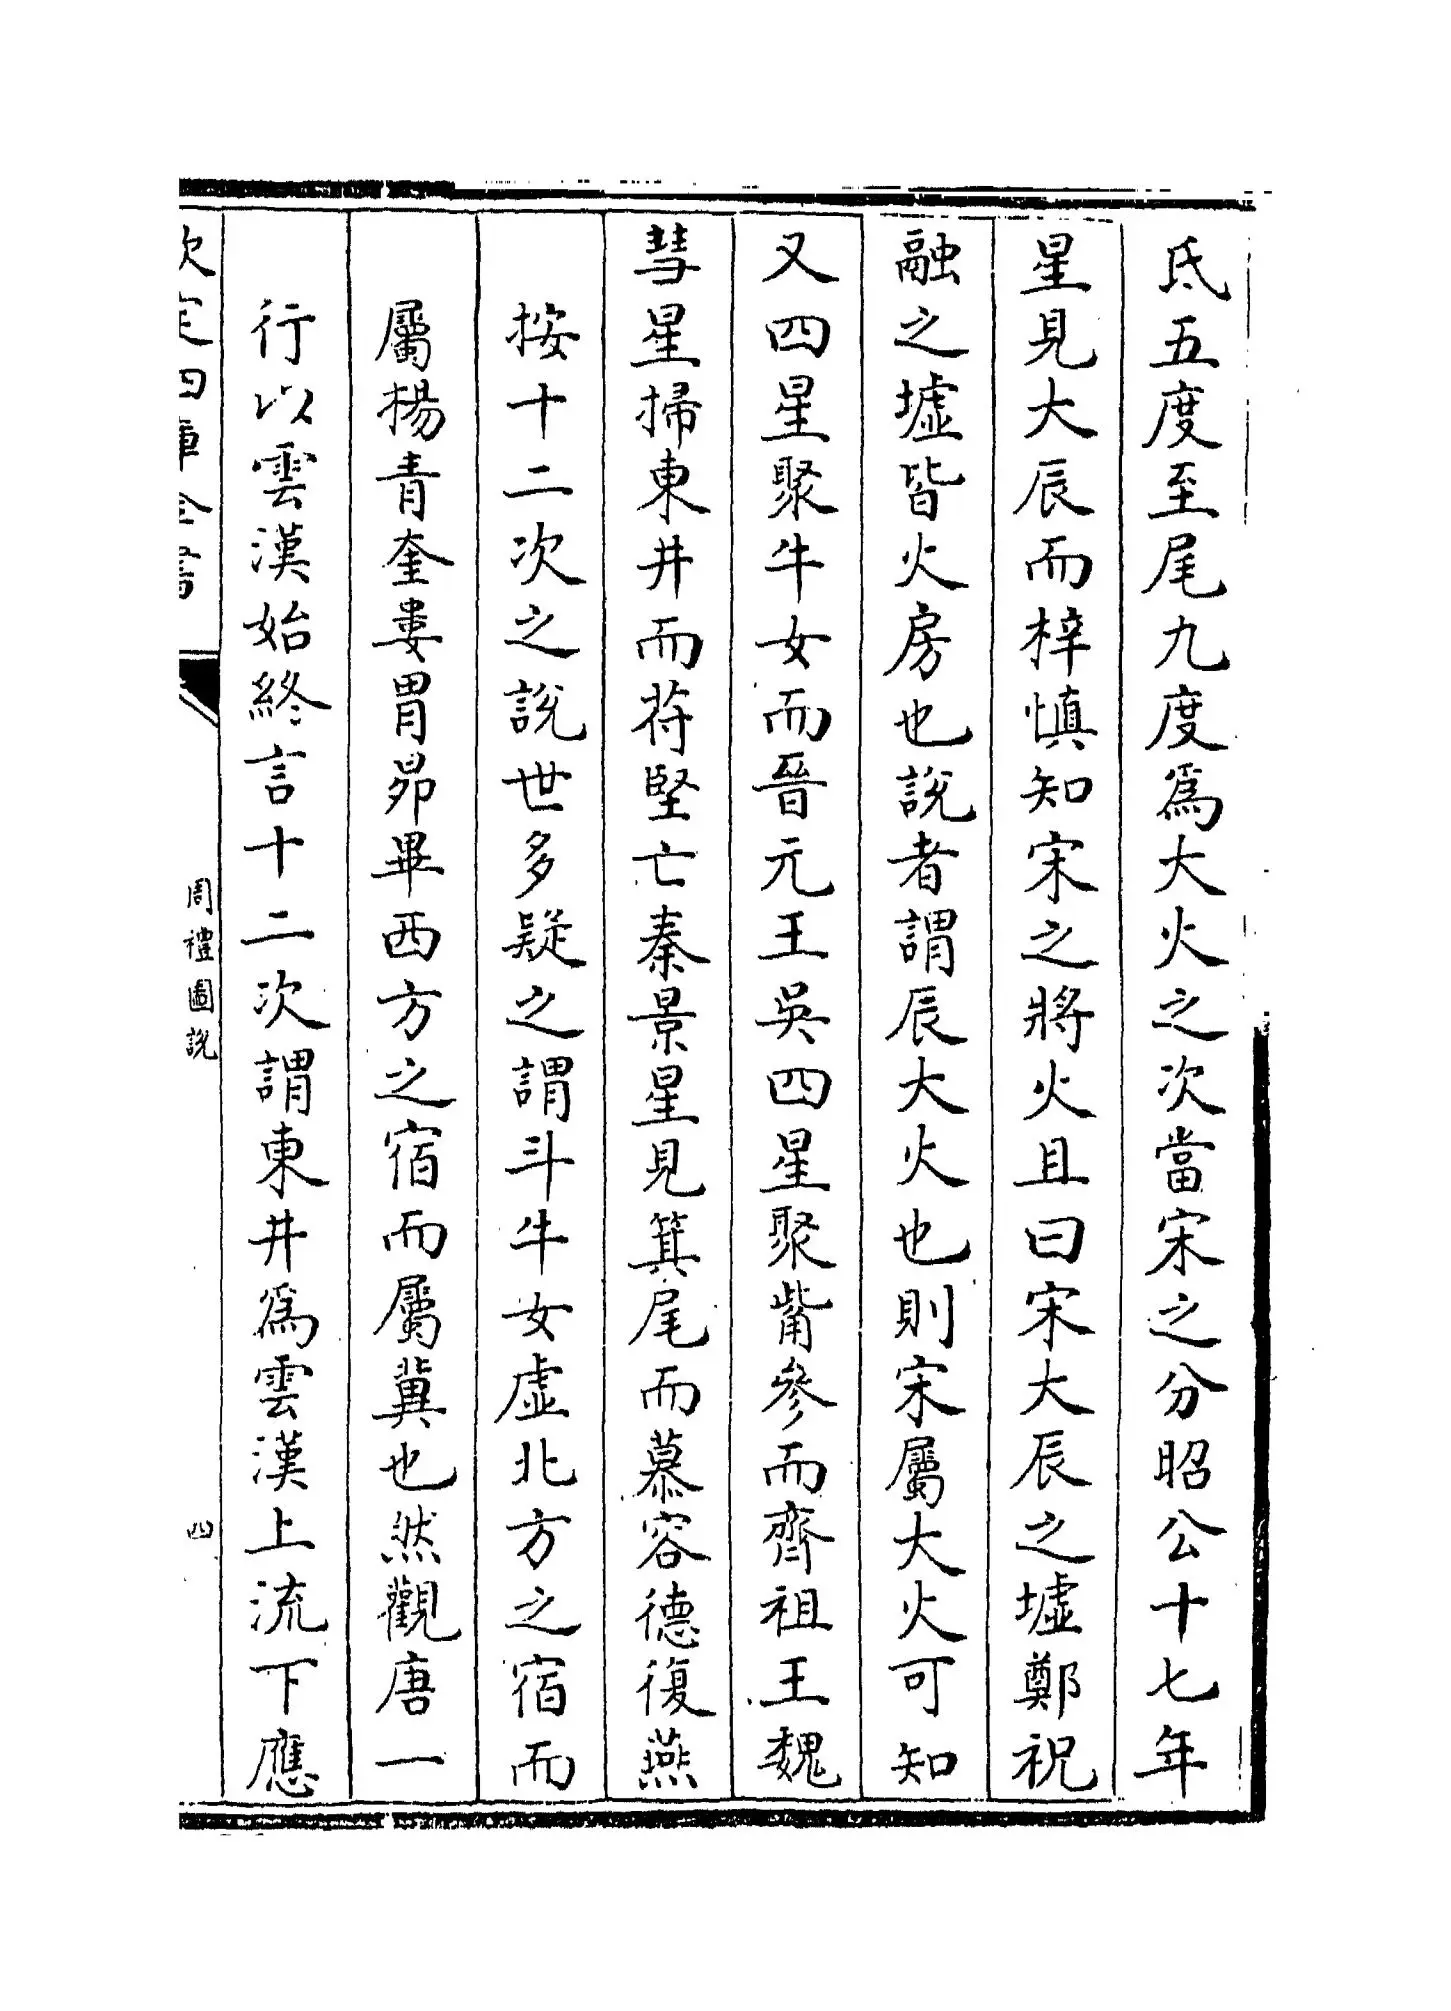 氐五度至尾九度為大火之次當宋之分昭公十七年
星見大辰而梓慎知宋之將火且曰宋大辰之墟鄭祝
融之墟皆火房也說者謂辰大火也則宋屬大火可知
又四星聚牛女而晉元王吳四星聚觜參而齊祖王魏
彗星掃東井而苻堅亡秦景星見箕尾而慕容德復燕
按十二次之說世多疑之謂斗牛女虛北方之宿而
屬楊青奎婁胃昴畢西方之宿而屬冀也然觀唐一
行以雲漢始終言十二次謂東井為雲漢上流下應
欽定四庫全書
周禮圖說
四